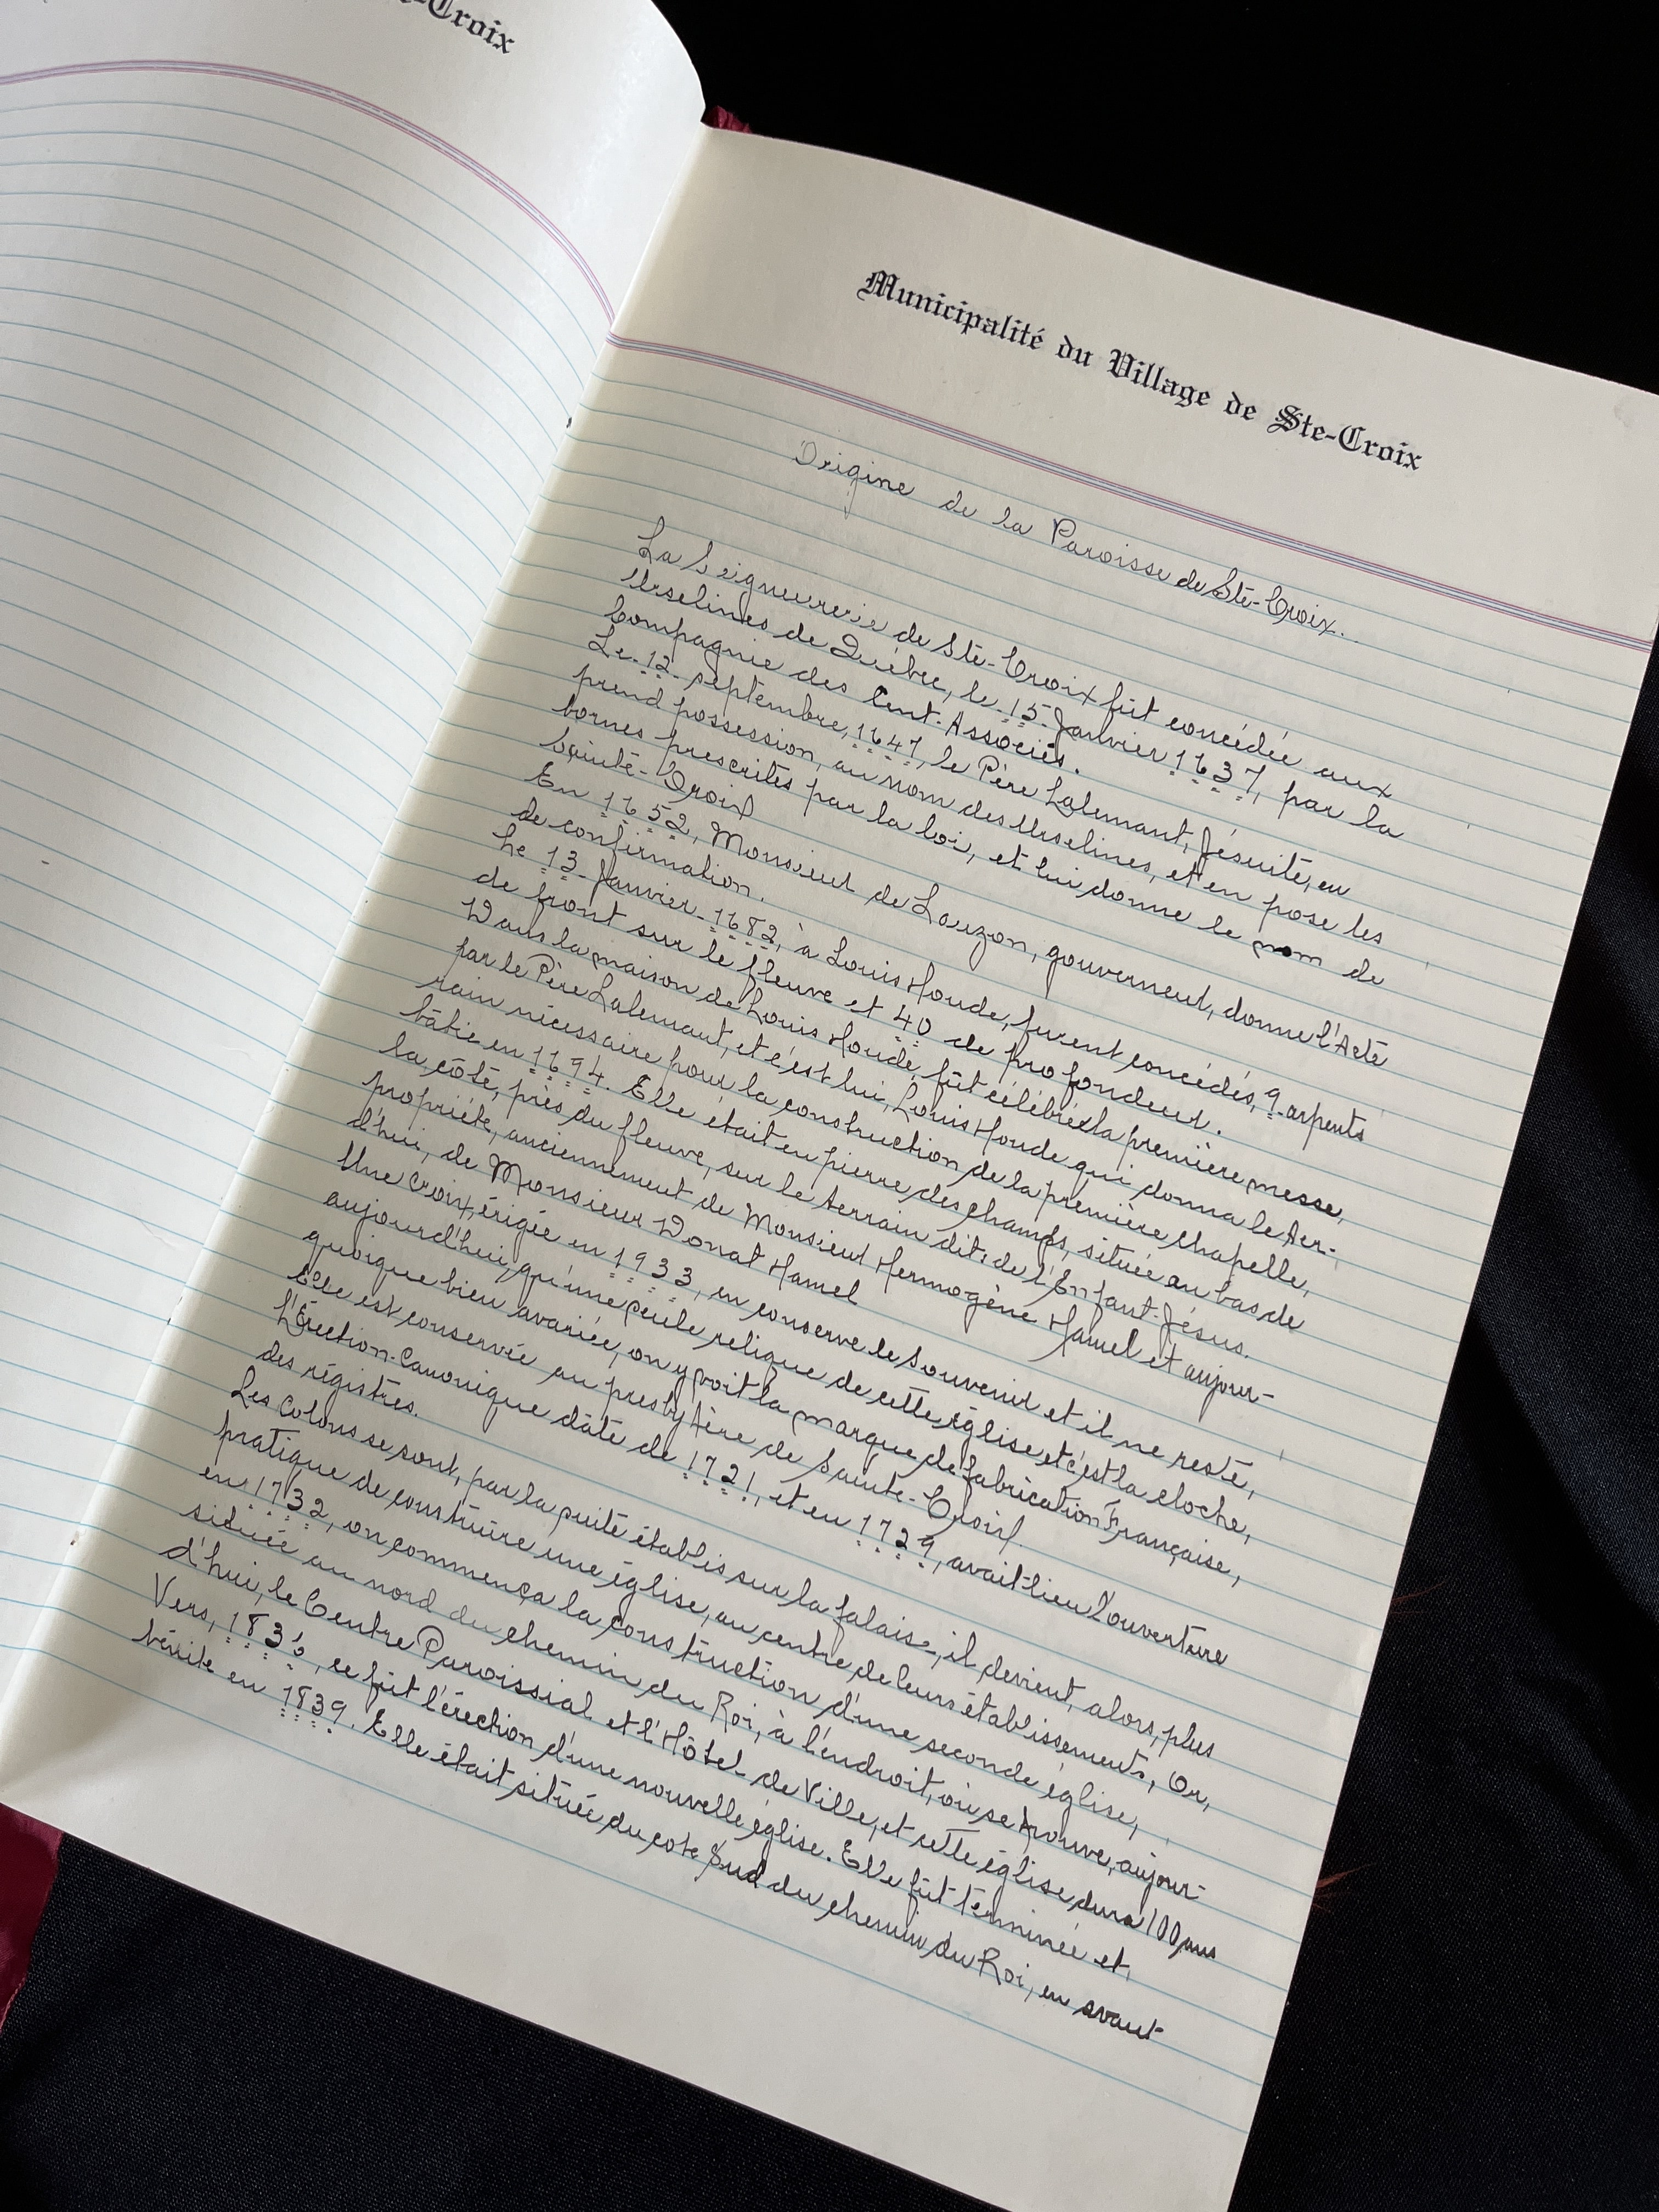 -Croix
Municipalité du Village de Ste-Croix
Origine de la Paroisse de Ste-Croix.
La Seigneurerie de Ste-Croix fût concédée aux
Urselines de Québec, le 15 Janvier 1637, par la
Compagnie des Cent-Associés.
Le 12 septembre, 1647, le Père Lalemant, Jésuite, en
prend possession, au nom des Urselines, et en pose les
bornes prescrites par la loi, et lui donne le nom de
Sainte-Croix
En 1652, Monsieur de Lauzon, gouverneur, donne l'Acte
de confirmation.
Le 13 Janvier-1682, à Louis Houde, furent concédés, 9 arpents
de front sur le fleuve et 40 de profondeur.
Dans la maison de Louis Houde, fût célébrée la première messe,
par le Père Lalemant, et c'est lui, Louis Houde qui donna le ter-
rain nécessaire pour la construction de la première chapelle,
bâtie en 1694. Elle était en pierre des champs, située au bas de
la côté, près du fleuve, sur le terrain dit: de l'Enfant-Jésus.
propriéte, anciennement de Monsieur Hermogène Hamel et aujour-
d'hui, de Monsieur Donat Hamel
Une Croix, érigée en 1933, en conserve le souvenir et il ne reste,
aujourd'hui, qu'une seule relique de cette église et c'est la cloche,
quoique bien avariée, on y voit la marque de fabrication Française,
Elle est conservée au presbytère de Sainte-Croix.
L'Érection-Canonique dâte de 1721, et en 1729, avait lieu l'ouverture
des régistres.
Les Colons se sont, par la suite établis sur la falaise, il devient, alors, plus
pratique de construire une église, au centre de leurs établissements, Or,
en 1732, on commença la construction d'une seconde église,
située au nord du chemin du Roi, à l'endroit, où se trouve, aujour-
d'hui, le Centre Paroissial et l'Hôtel-de Ville, et cette église dura 100 ans
Vers, ce fût l'érection d'une nouvelle église. Elle fût terminée et,
bénite en 1839. Elle était située du coté Sud du chemin du Roi, en avant